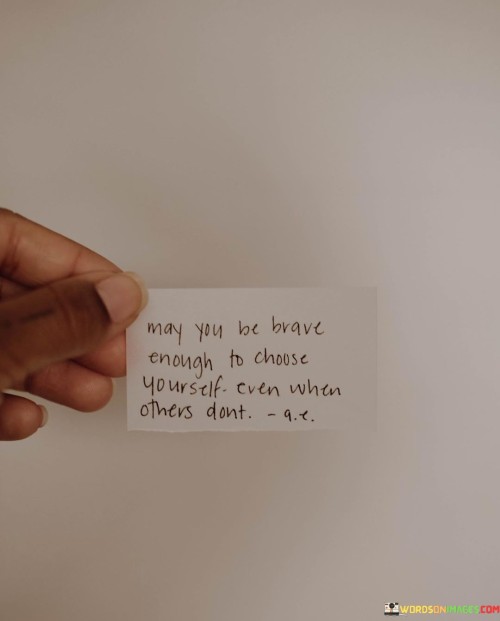 may you be brave
enough to choose
yourself. even when
others dont. - a.e.
WORDSONIMAGES.COM